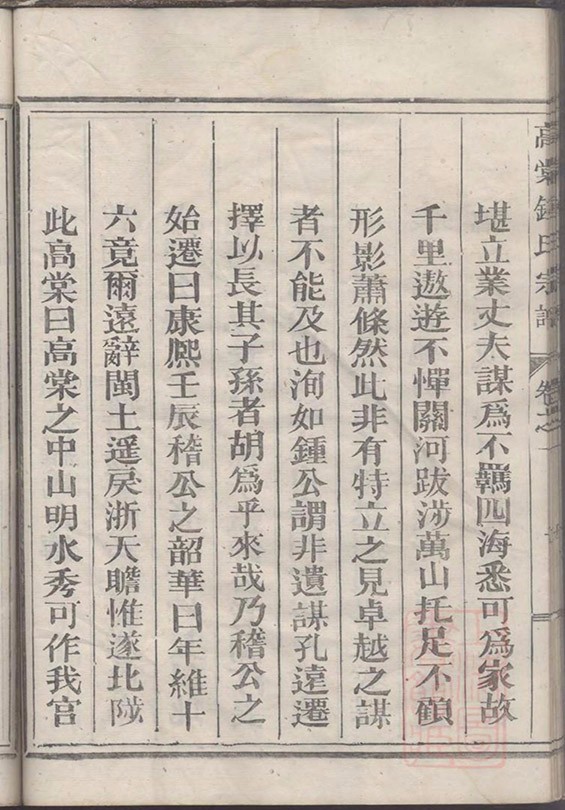 高棠鍾氏宗譜 卷之一
堪立業丈夫謀爲不羈四海悉可爲家故
千里遨遊不憚關河跋涉萬山托足不顧
形影蕭條然此非有特立之見卓越之謀
者不能及也洵如鍾公謂非遺謀孔遠遷
擇以長其子孫者胡爲乎來哉乃稽公之
始遷曰康熙壬辰稽公之韶華日年維十
六竟爾遠辭閩土遥戾浙天瞻惟遂北陔
此高棠曰高棠之中山明水秀可作我宫